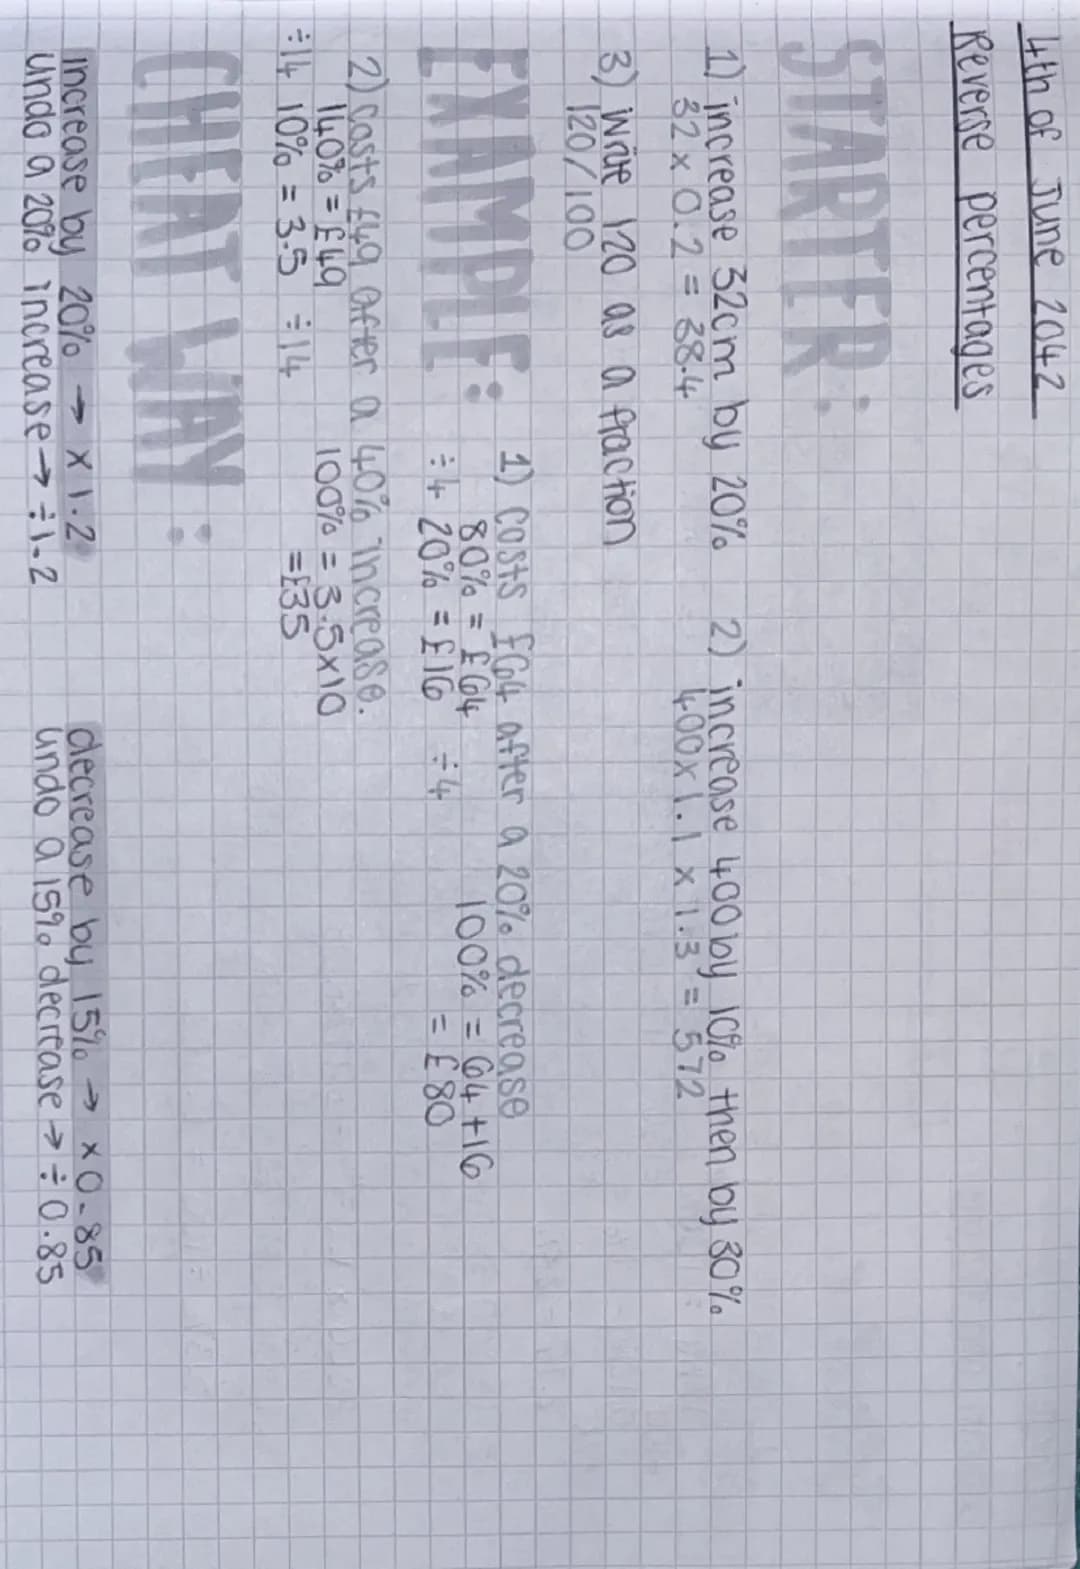 4th of June 2042
Reverse percentages
STARTER:
1) increase 32cm by 20% 2) increase 400 by 10% then by 30%
32 x 0.2 = 38.4 400 x 1.1 x 1.3 = 572
3) write 120 as a fraction
120/100
EXAMPLE: 1) costs £64 after a 20% decrease
80% = £64 100% = 64 + 16
÷4 20% = £16 ÷4 = £80
2) costs £49 after a 40% increase.
140% = £49 100% = 3.5 x 10
÷14 10% = 3.5 ÷14 = £35
CHEAT WAY:
increase by 20% → x 1.2 decrease by 15% → x 0.85
undo a 20% increase → ÷1.2 undo a 15% decrease → ÷0.85